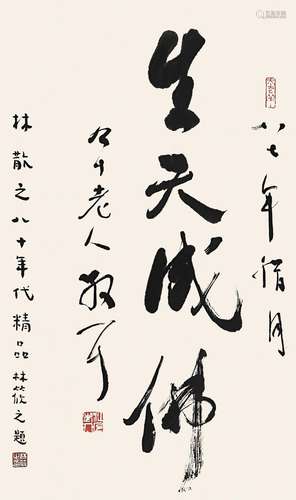 八七年腊月
生天成佛
九十老人散耳
林散之八十年代精品林筱之题